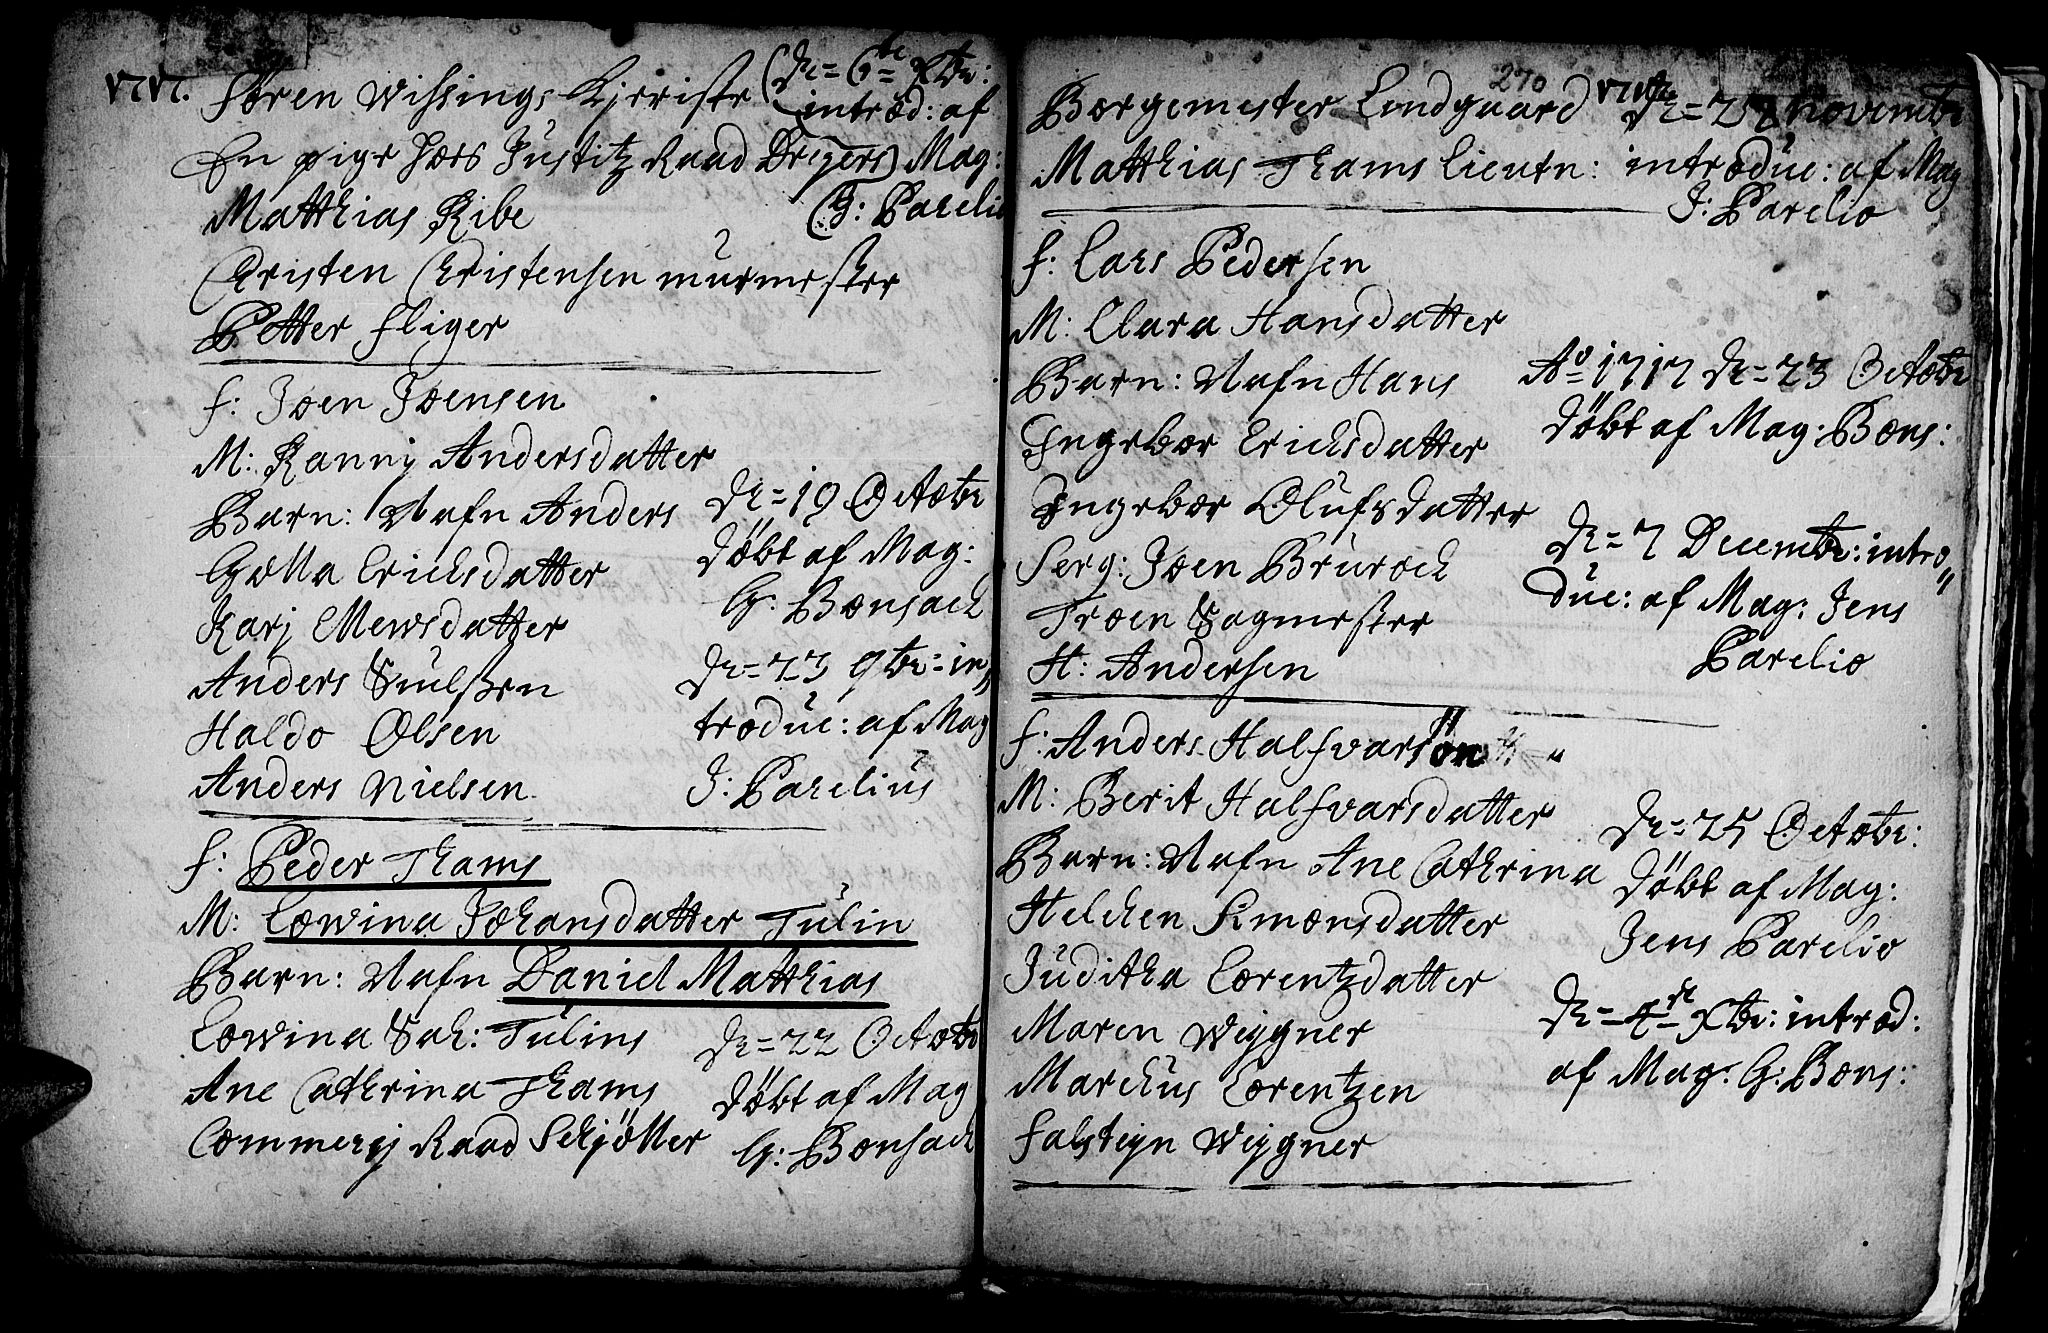 1717.
Søren Wissings Kjeriste
(Dn = 6te Xbr:
introd: af
En pige hoes Justitz Raad Dreyers) Mag:
Matthias Ribe
(J: Parelio
Christen Christensen murmester
Petter Fliger
F: Joen Joensen
M: Ranny Andersdatter
Barn: Nafn Anders
Golla Ericksdatter
Karj Mewsdatter
Anders
Haldo Olsen
Anders Nielsen
Dn = 19 Octobr
døbt af Mag:
G: Bonsach
Dn = 23 9br: in,,
troduc: af Mag
J: Parelius
F: Peder Thams
M: Lowina Johansdatter Tulin
Barn: Nafn Daniel Matthias
Lowina Sal: Tulins
Ane Cathrina Thams
Commercij Raad Schjøtter
Dn = 22 Octobr
døbt af Mag
G: Bonsach
270
1717
Borgemester Lindgaard
Dn = 27 Novembr
Matthias Thams Lieutn: introduc: af Mag
J: Parelio
F: Lars Pedersen
M: Clara Hansdatter
Barn: Nafn Hans
Ingebor Ericksdatter
Ingebor Olufsdatter
Serg: Joen Brurock
Troen Sagmester
H: Andersen
Ao 1717 Dn = 23 Octobr
døbt af Mag: Bons:
Dn = 7 Decembr: intro,,
duc: af Mag: Jens
Parelio
F: Anders Halfvarsøn
M: Berit Halfvarsdatter
Barn: Nafn Ane Cathrina
Helchen Simonsdatter
Juditha Lorentzdatter
Maren Wijgner
Marchus Lorentzen
Falsteyn Wijgner
Dn = 25 Octobr:
døbt af Mag:
Jens Parelio
Dn = 4de Xbr: introd:
af Mag: G: Bons: